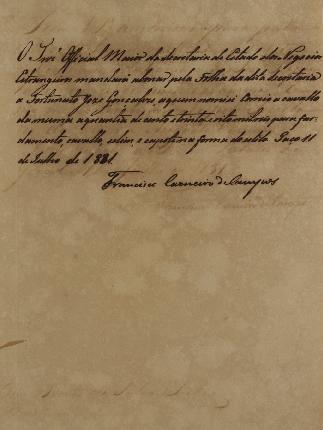 O Snr. Official Maior da Secretaria de Estado dos Negocios
Estrangeiros mandará abonar pela Folha da dita Secretaria
a Fortunato Joze Gonçalves, a quem nomeei Correio a cavallo
da mesma a quantia de cento e trinta e oito mil reis para far-
damento, cavallo, selim, e capotim na forma do estilo. Paço 11
de Julho de 1831
Francisco Carneiro de Campos